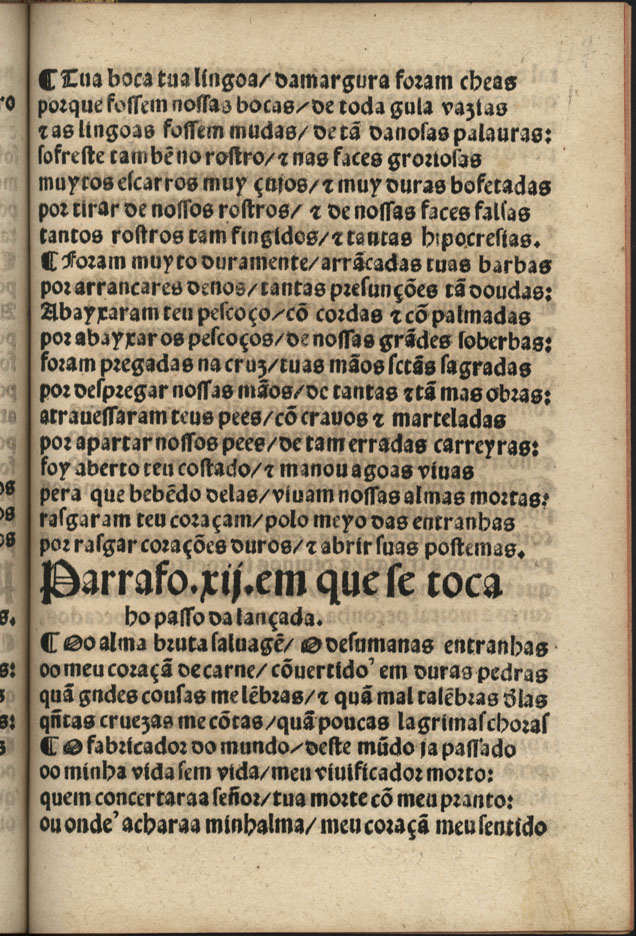 ¶ Tua boca tua lingoa/ damargura foram cheas
porque fossem nossas bocas/ de toda gula vazias
⁊ as lingoas fossem mudas/ de tã danosas palauras:
sofreste tambẽ no rostro/ ⁊ nas faces groriosas
muytos escarros muy çujos/ ⁊ muy duras bofetadas
por tirar de nossos rostros/ ⁊ de nossas faces falsas
tantos rostros tam fingidos/ ⁊ tantas hipocresias.
¶ Foram muyto duramente/ arrãcadas tuas barbas
por arrancares denos/ tantas presunções tã doudas:
Abayxaram teu pescoço/ cõ cordas ⁊ cõ palmadas
por abayxar os pescoços/ de nossas grãdes soberbas:
foram pregadas na cruz/ tuas mãos sctãs sagradas
por despregar nossas mãos/ de tantas ⁊ tã mas obras:
atrauessaram teus pees/ cõ crauos ⁊ marteladas
por apartar nossos pees/ de tam erradas carreyras:
foy aberto teu costado/ ⁊ manou agoas viuas
pera que bebẽdo delas/ viuam nossas almas mortas:
rasgaram teu coraçam/ polo meyo das entranhas
por rasgar corações duros/ ⁊ abrir suas postemas.
Parrafo.xij.em que se toca
ho passo da lançada.
¶ Oo alma bruta saluagẽ/ O desumanas entranhas
oo meu coraçã de carne/ cõuertido' em duras pedras
quã gndes cousas me lẽbras/ ⁊ quã mal talẽbras dlas
qñtas cruezas me cõtas/ quã poucas lagrimas choras
¶ O fabricador do mundo/ deste mũdo ja passado
oo minha vida sem vida/ meu viuificador morto:
quem concertaraa señor/ tua morte cõ meu pranto:
ou onde' acharaa minhalma/ meu coraçã meu sentido